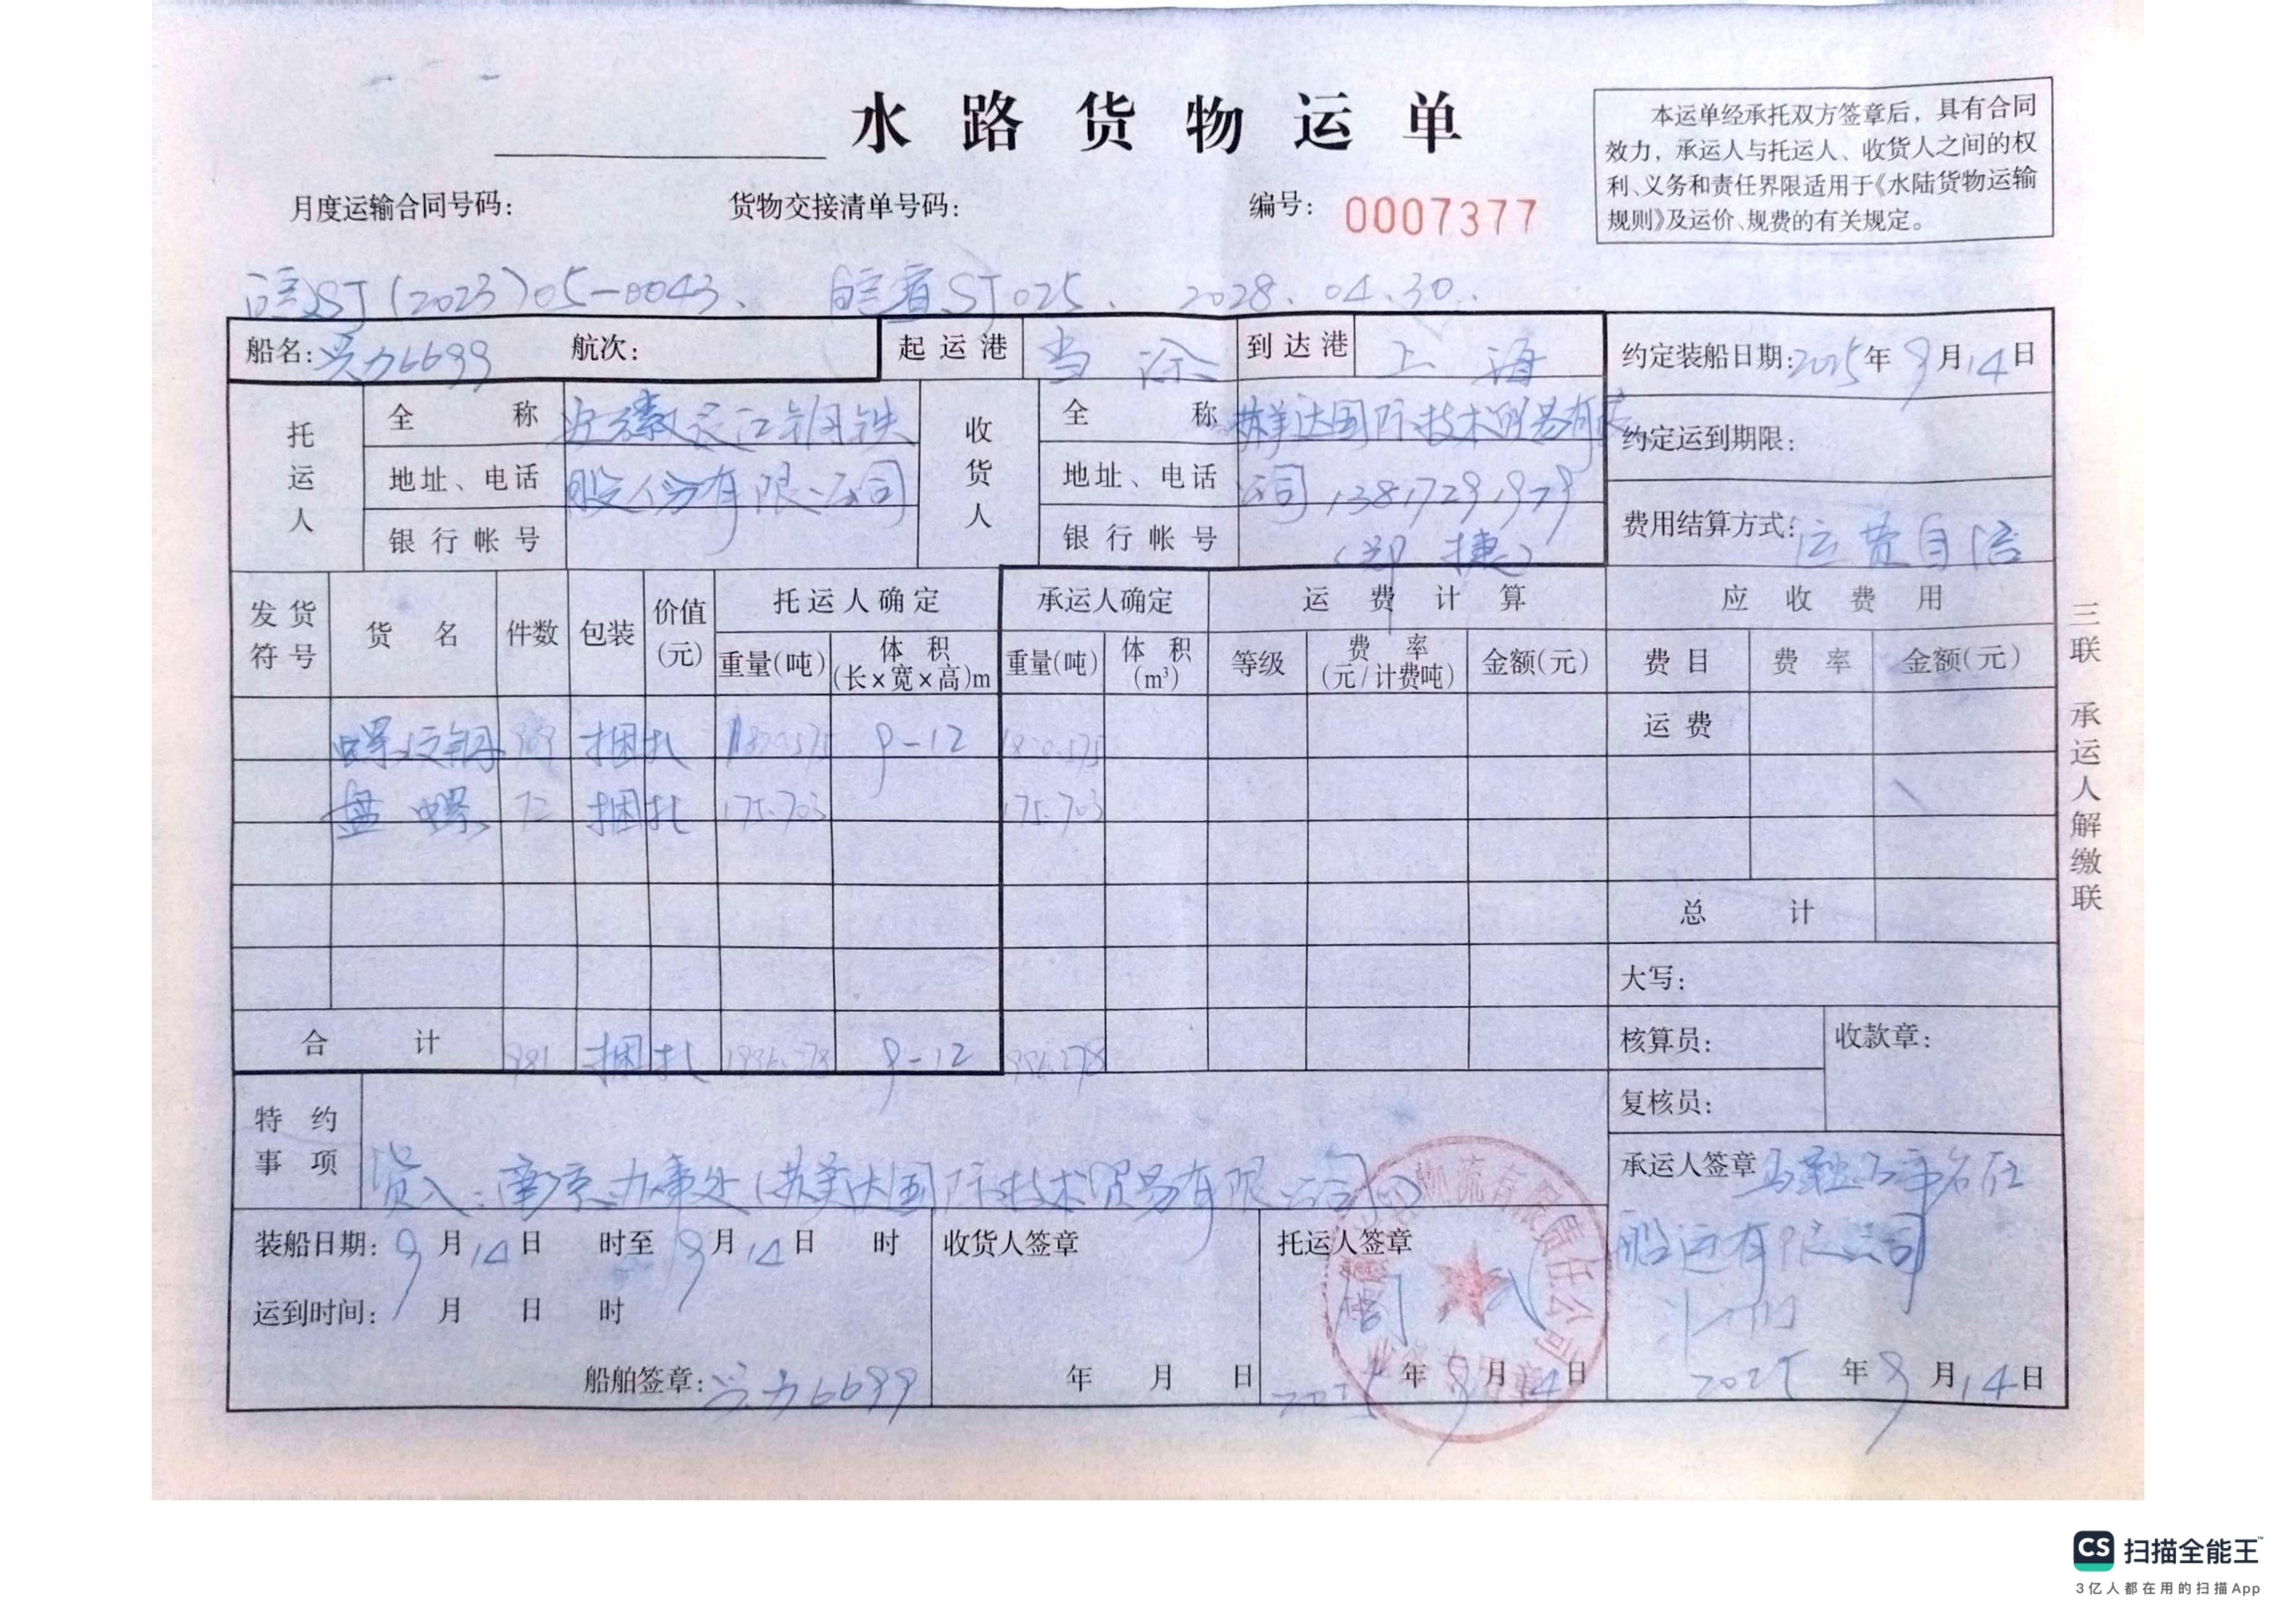 水路货物运单
本运单经承托双方签章后，具有合同
效力，承运人与托运人、收货人之间的权
利、义务和责任界限适用于《水陆货物运输
规则》及运价、规费的有关规定。
月度运输合同号码： 货物交接清单号码： 编号： 0007377
ST(2023)05-0043、 ST025、 2028.04.30.
船名：兴力6699 航次： 起运港 当涂 到达港 上海 约定装船日期：2025年9月14日
托运人 全称 安徽长江钢铁 收货人 全称 苏美达国际技术贸易有限 约定运到期限：
地址、电话 股份有限公司 地址、电话 公司
银行帐号 银行帐号 捷） 费用结算方式：运费自结
发货符号 货名 件数 包装 价值(元) 托运人确定 承运人确定 运费计算 应收费用
重量(吨) 体积(长×宽×高)m 重量(吨) 体积(m³) 等级 费率(元/计费吨) 金额(元) 费目 费率 金额(元)
螺纹钢 捆扎 9-12 运费
盘螺 72 捆扎 175.703 175.703
总计
大写：
合计 捆扎 9-12 核算员： 收款章：
复核员：
特约事项 货入：南京办事处（苏美达国际技术贸易有限公司） 承运人签章
船运有限公司
装船日期：9月14日 时至9月14日 时 收货人签章 托运人签章
运到时间： 月 日 时
船舶签章：兴力6699 年 月 日 2025年9月14日 2025年9月14日
物流有限责任公司
三联 承运人解缴联
CS 扫描全能王™
3亿人都在用的扫描App